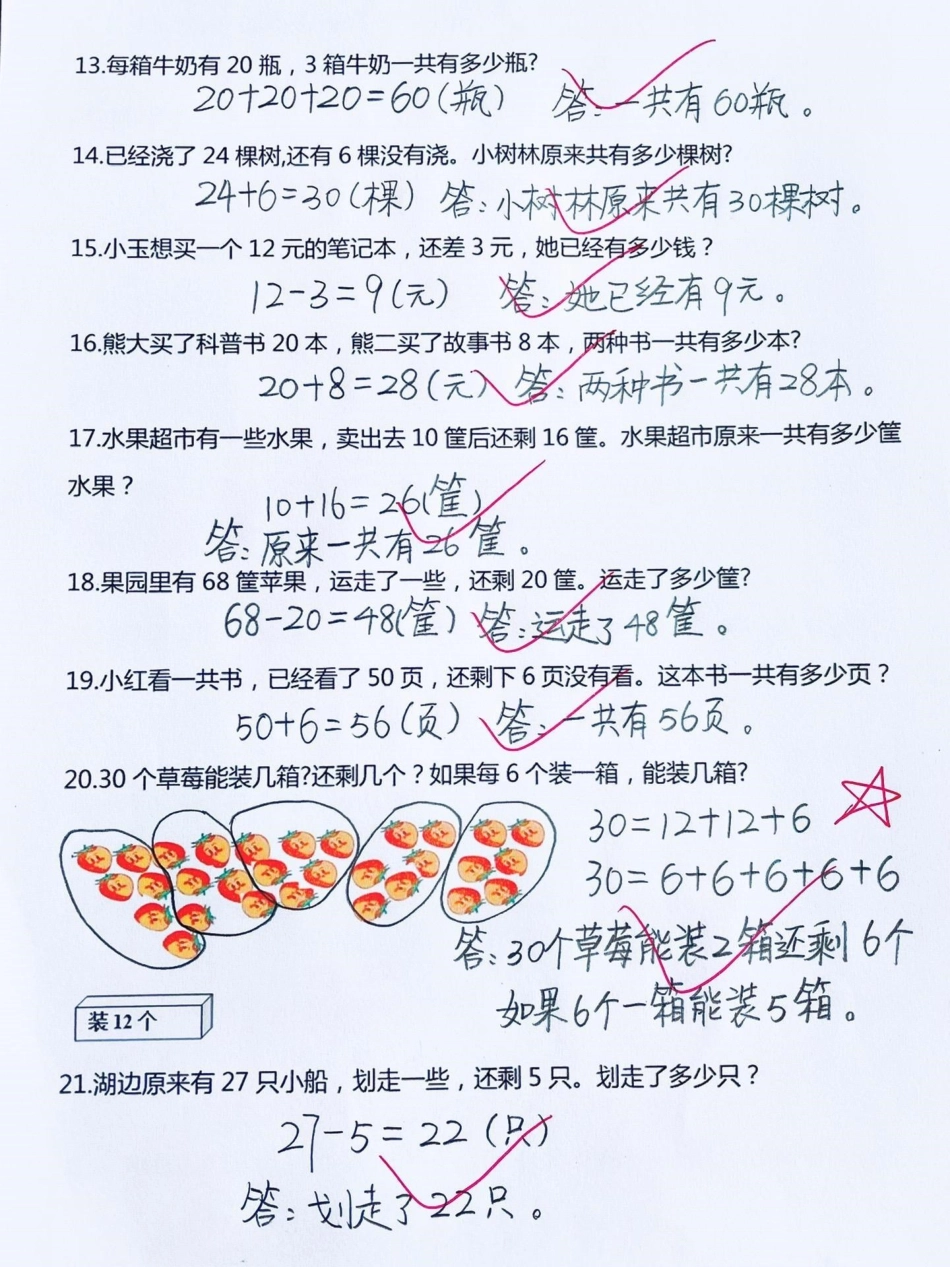 13.每箱牛奶有 20 瓶，3 箱牛奶一共有多少瓶?
20+20+20=60(瓶) 答:一共有60瓶。
14.已经浇了 24 棵树,还有 6 棵没有浇。小树林原来共有多少棵树?
24+6=30(棵) 答:小树林原来共有30棵树。
15.小玉想买一个 12 元的笔记本，还差 3 元，她已经有多少钱？
12-3=9(元) 答:她已经有9元。
16.熊大买了科普书 20 本，熊二买了故事书 8 本，两种书一共有多少本?
20+8=28(元) 答:两种书一共有28本。
17.水果超市有一些水果，卖出去 10 筐后还剩 16 筐。水果超市原来一共有多少筐
水果？
10+16=26(筐)
答:原来一共有26筐。
18.果园里有 68 筐苹果，运走了一些，还剩 20 筐。运走了多少筐?
68-20=48(筐) 答:运走了48筐。
19.小红看一共书，已经看了 50 页，还剩下 6 页没有看。这本书一共有多少页？
50+6=56(页) 答:一共有56页。
20.30 个草莓能装几箱?还剩几个？如果每 6 个装一箱，能装几箱?
30=12+12+6
30=6+6+6+6+6
答:30个草莓能装2箱还剩6个
如果6个一箱能装5箱。
装12个
21.湖边原来有 27 只小船，划走一些，还剩 5 只。划走了多少只？
27-5=22(只)
答:划走了22只。